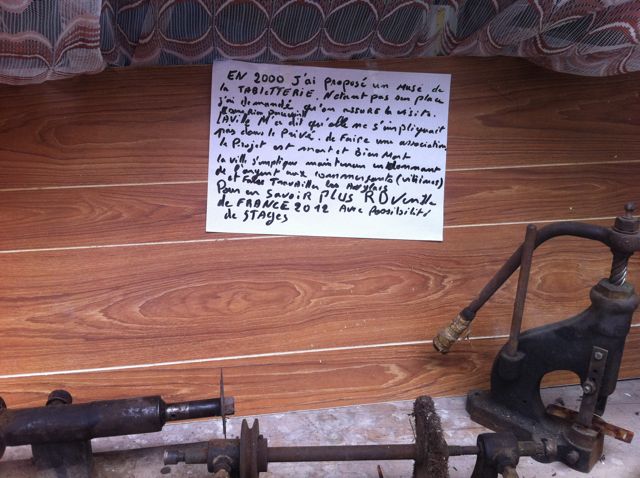 EN 2000 J'ai proposé un Musé de
la TABLETTERIE. N'etant pas sur place
j'ai demandé qu'on assure la visite.
LAVille M'a dit qu'elle ne s'impliquait
pas dans le Privé. de Faire une association
le Projet est mort et Bien Mort
la ville s'implique maintenant en donnant
de l'argent aux commersants (vitrines)
et Faire Travailler les Anglais
Pour en SAVOIR PLUS R D
de FRANCE 2012 Avec Possibilité
de STAGES